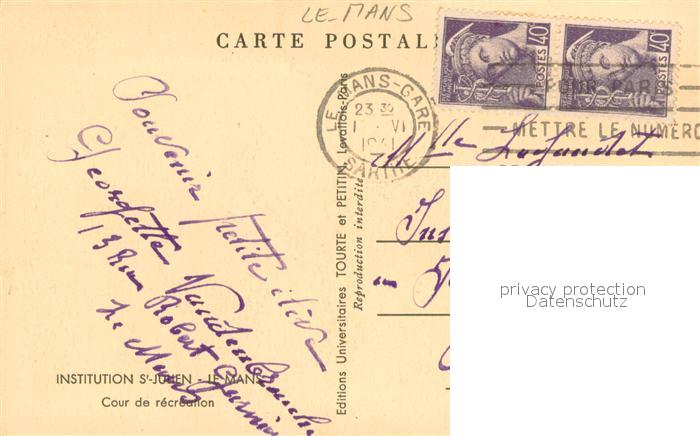 LE-MANS
CARTE POSTALE
40c
POSTES
40c
POSTES
LE MANS-GARE
23 30
1 - VI
1941
SARTHE
METTRE LE NUMÉRO
Mlle
Souvenir petite élève
Georgette
13 Rue Robert Garnier
Le Mans
Editions Universitaires TOURTE et PETITIN, Levallois-Paris
Reproduction interdite
INSTITUTION St-JULIEN - LE MANS
Cour de récréation
privacy protection
Datenschutz